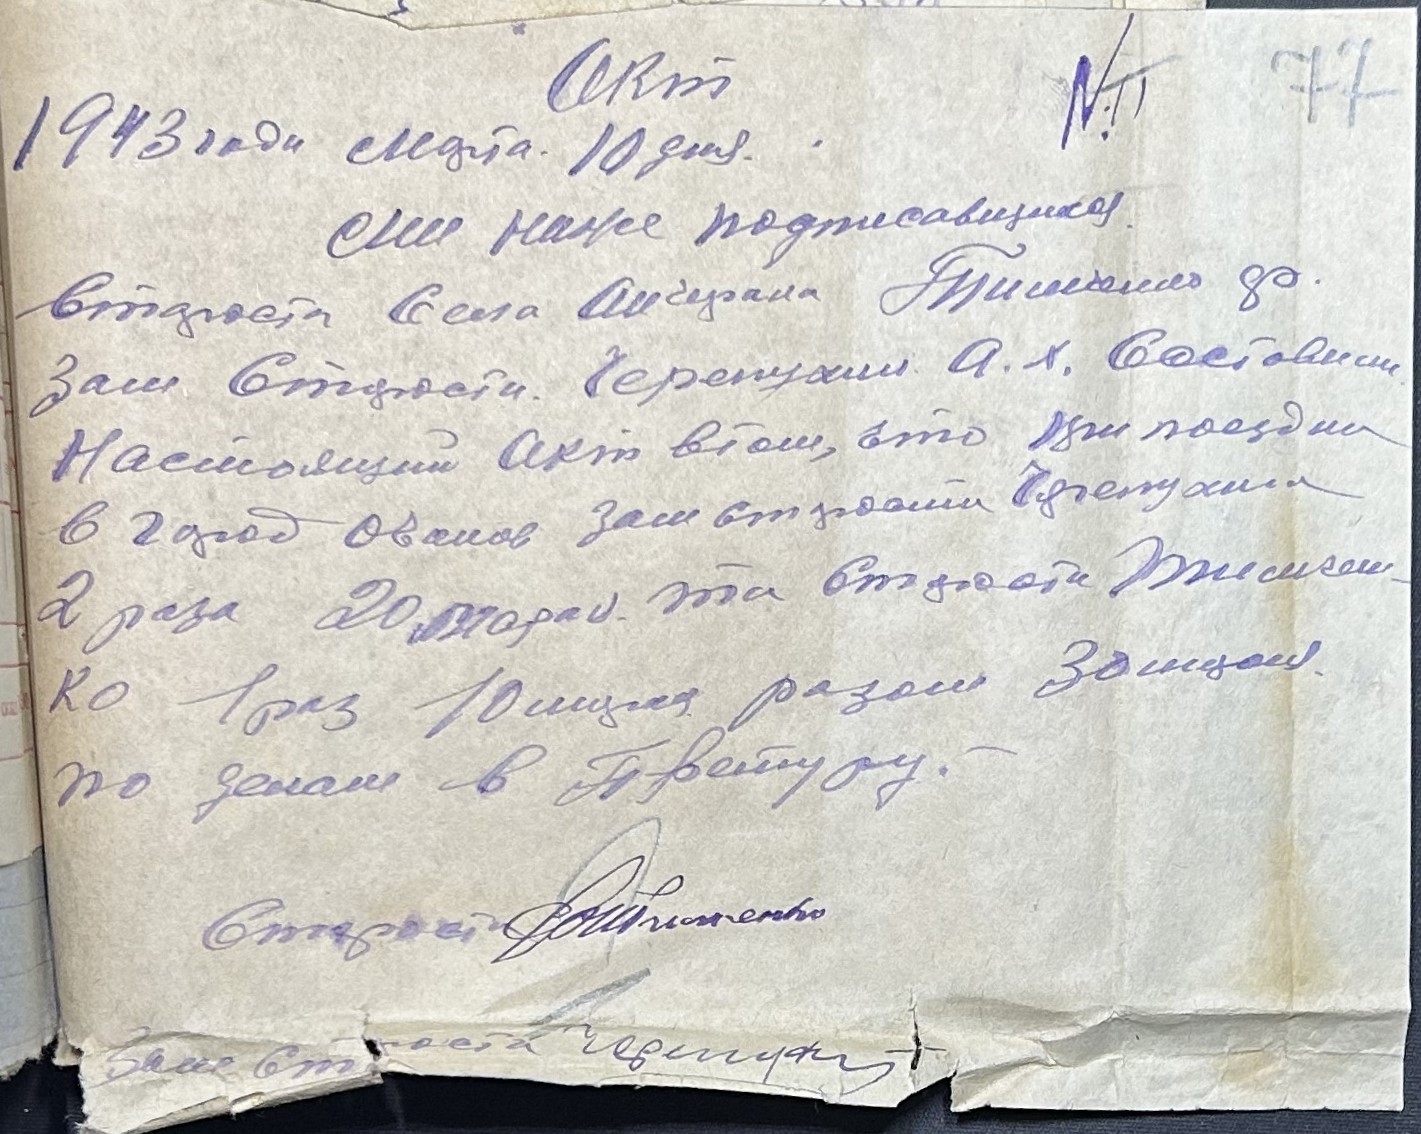 Акт
№ 11
77
1943 года Марта 10 дня.
Мы ниже подписавщихся
Старости Села Анчарана Тимченко
Зам Старости. Черепухин А. Х. Составили
Настоящий Акт втом, что при поездки
в город Очаков Зам старости Черепухина
2 раза 20 марак. та Старости Тимчен-
ко 1 раз 10 марак разом 30 марак.
по делам в Претуру.
Старости Тимченко
Зам Старости Черепухин